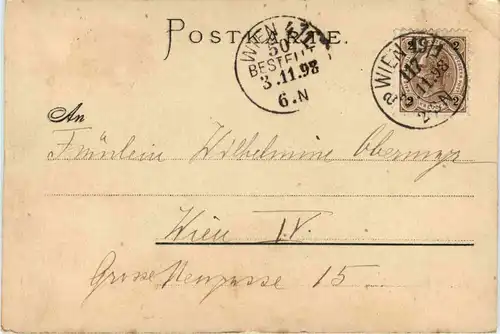 POSTKARTE.
WIEN
50
BESTELLT
3.11.98
6.N
WIEN 19/1
117
11.98
2 N
2 2
An
Fräulein Wilhelmine Obermayr
Wien IV.
Grosse Neugasse 15.